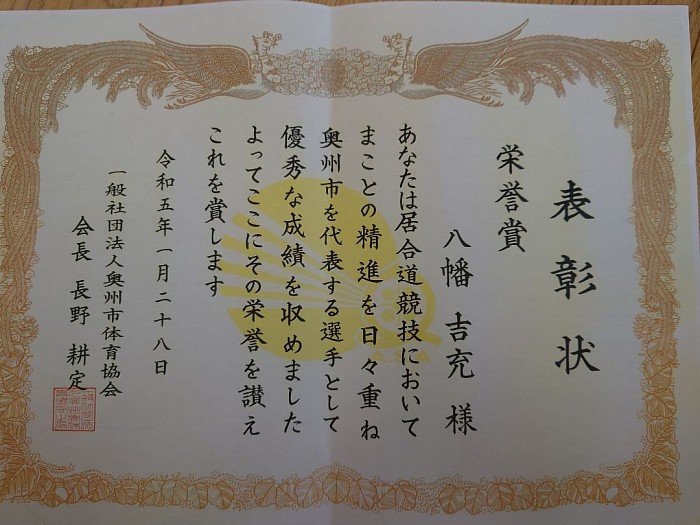 表彰状
栄誉賞
八幡吉充様
あなたは居合道競技において
まことの精進を日々重ね
奥州市を代表する選手として
優秀な成績を収めました
よってここにその栄誉を讃え
これを賞します
令和五年一月二十八日
一般社団法人奥州市体育協会
会長 長野耕定